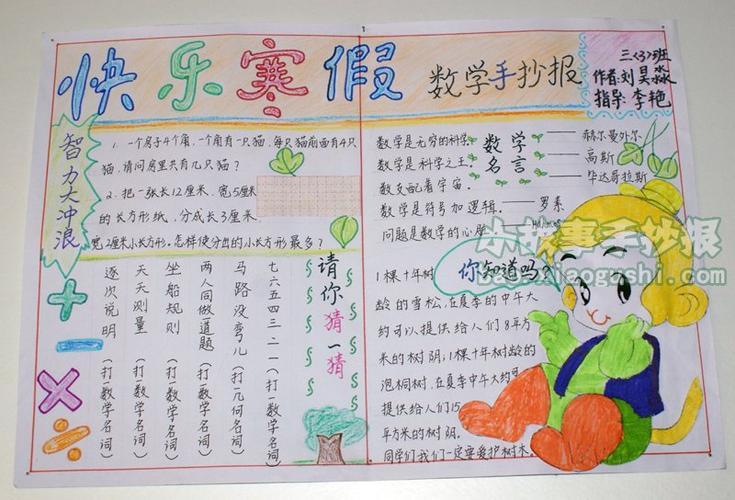 快乐寒假
数学手抄报
三〈3〉班
作者:刘昊淼
指导:李艳
智力大冲浪
1. 一个房子4个角,一个角有一只猫,每只猫前面有4只
猫,请问房里共有几只猫?
2. 把一张长12厘米,宽5厘米
的长方形纸,分成长3厘米,
宽2厘米小长方形。怎样使分出的小长方形最多?
请你猜一猜
七六五四三二一(打一数学名词)
马路没弯儿(打一几何名词)
两人同做道题(打一数学名词)
坐船规则(打一数学名词)
天天测量(打一数学名词)
逐次说明(打一数学名词)
数学名言
数学是无穷的科学 —— 赫尔曼外尔
数学是科学之王。 —— 高斯
数支配着宇宙。 —— 毕达哥拉斯
数学是符号加逻辑。 —— 罗素
问题是数学的心脏
你知道吗?
1棵十年树
龄的雪松,在夏季的中午大
约可以提供给人们8平方
米的树阴;1棵十年树龄的
泡桐树,在夏季中午大约可
提供给人们15
平方米的树阴。
同学们我们一定要爱护树木
小故事手抄报
xiaogashi.com